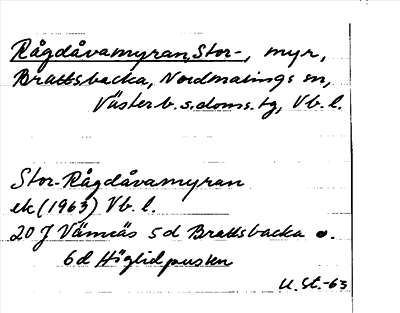 Rågdåvamyran, Stor-, myr,
Brattsbacka, Nordmalings sn,
Västerb. s. doms. tg, Vb. l.
Stor-Rågdåvamyran
ek (1963) Vb. l.
20 J Vämnäs 5d Brattsbacka o.
6d Höglidpusten
U. St. -63